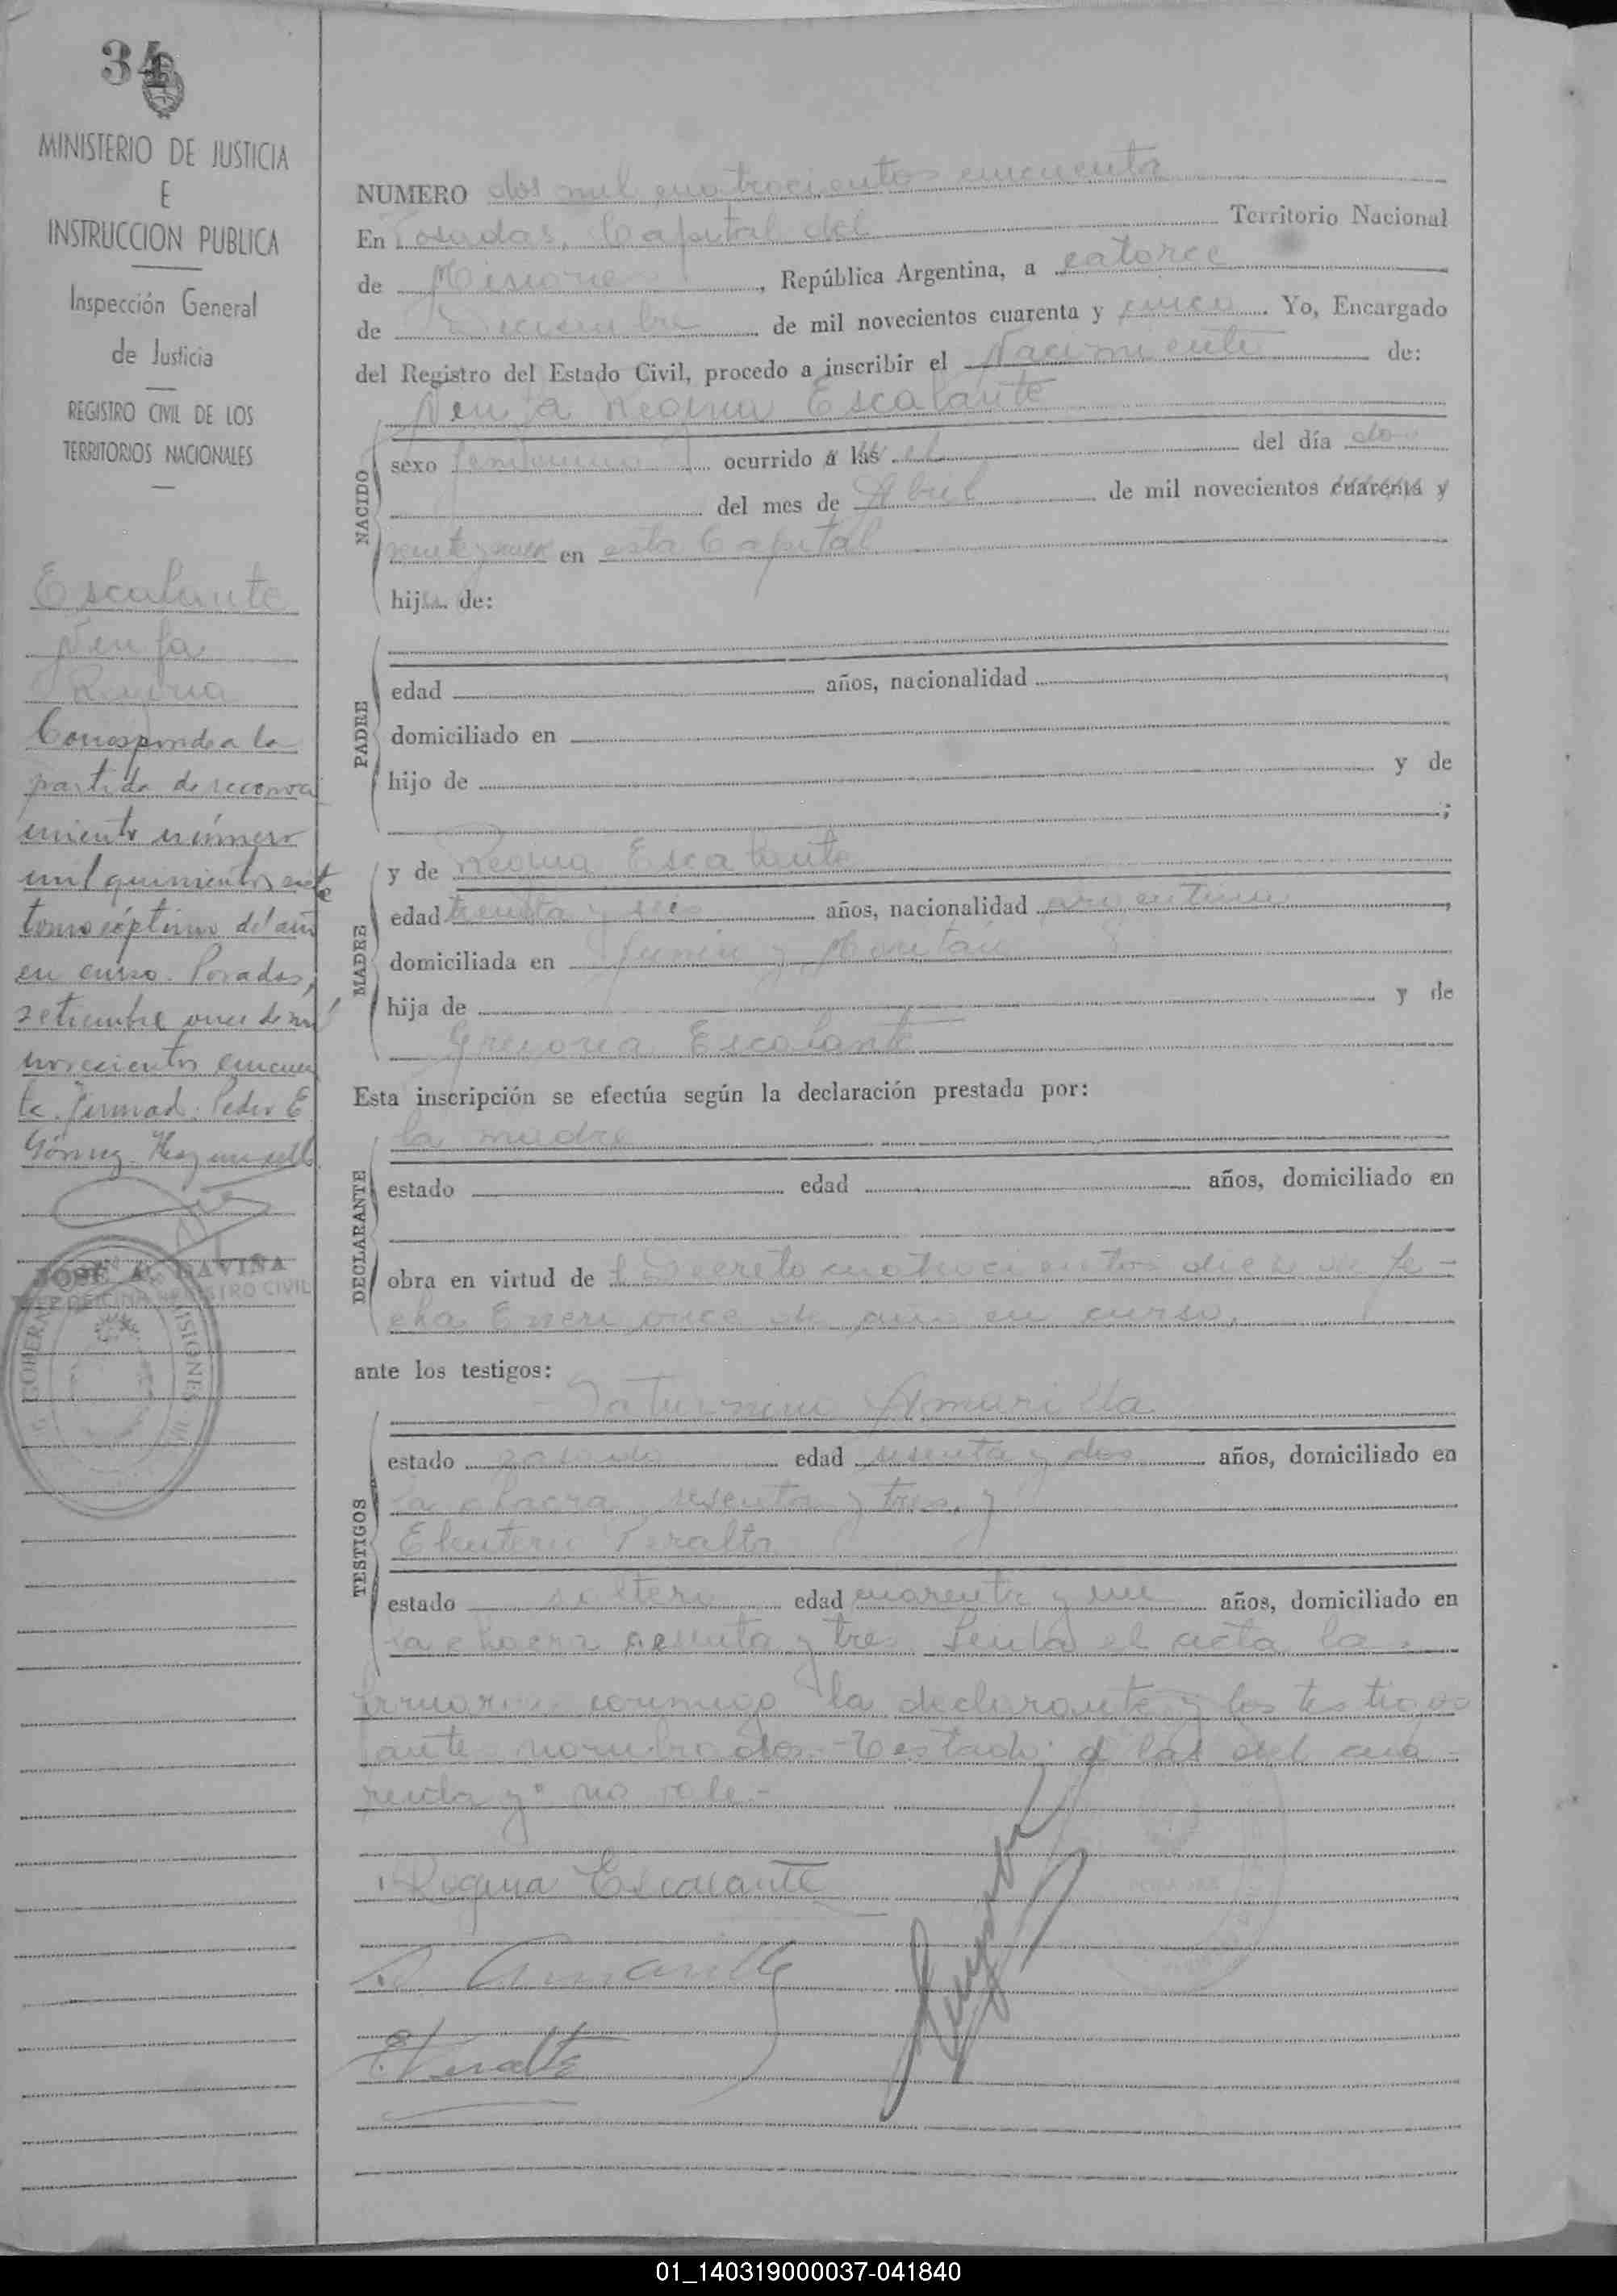 34
MINISTERIO DE JUSTICIA
E
INSTRUCCION PUBLICA
Inspección General
de Justicia
REGISTRO CIVIL DE LOS
TERRITORIOS NACIONALES
Escalante
Ninfa
Regina
Corresponde a la
partida de reconoci
miento número
mil quinientos siete
tomo séptimo del año
en curso. Posadas,
setiembre once de mil
novecientos cincuen
ta. Firmado: Pedro E
Gómez. Hay un sello
JOSÉ A. GAVIÑA
REGISTRO CIVIL
MISIONES
NUMERO dos mil cuatrocientos cincuenta
En Posadas, Capital del Territorio Nacional
de Misiones, República Argentina, a catorce
de Diciembre de mil novecientos cuarenta y cinco. Yo, Encargado
del Registro del Estado Civil, procedo a inscribir el Nacimiento de:
Ninfa Regina Escalante
NACIDO
sexo femenino ocurrido a las el del día dos
del mes de Abril de mil novecientos cuarenta y
en esta Capital
hija de:
PADRE
edad años, nacionalidad
domiciliado en
hijo de y de
;
MADRE
y de Regina Escalante
edad treinta y seis años, nacionalidad argentina,
domiciliada en Junin y
hija de y de
Gregoria Escalante
Esta inscripción se efectúa según la declaración prestada por:
DECLARANTE
la madre
estado edad años, domiciliado en
obra en virtud de l Decreto cuatrocientos diez de fe-
cha Enero once de año en curso,
ante los testigos:
TESTIGOS
Saturnino Amarilla
estado casado edad sesenta y dos años, domiciliado en
la chacra sesenta y tres, y
Eleuterio Peralta
estado soltero edad cuarenta y un años, domiciliado en
la chacra sesenta y tres. Leida el acta la
firmaron conmigo la declarante y los testigos
ante nombrados.- Testado: a las del cua-
renta y" no vale.-
Regina Escalante
S. Amarilla
E Peralta
01_140319000037-041840